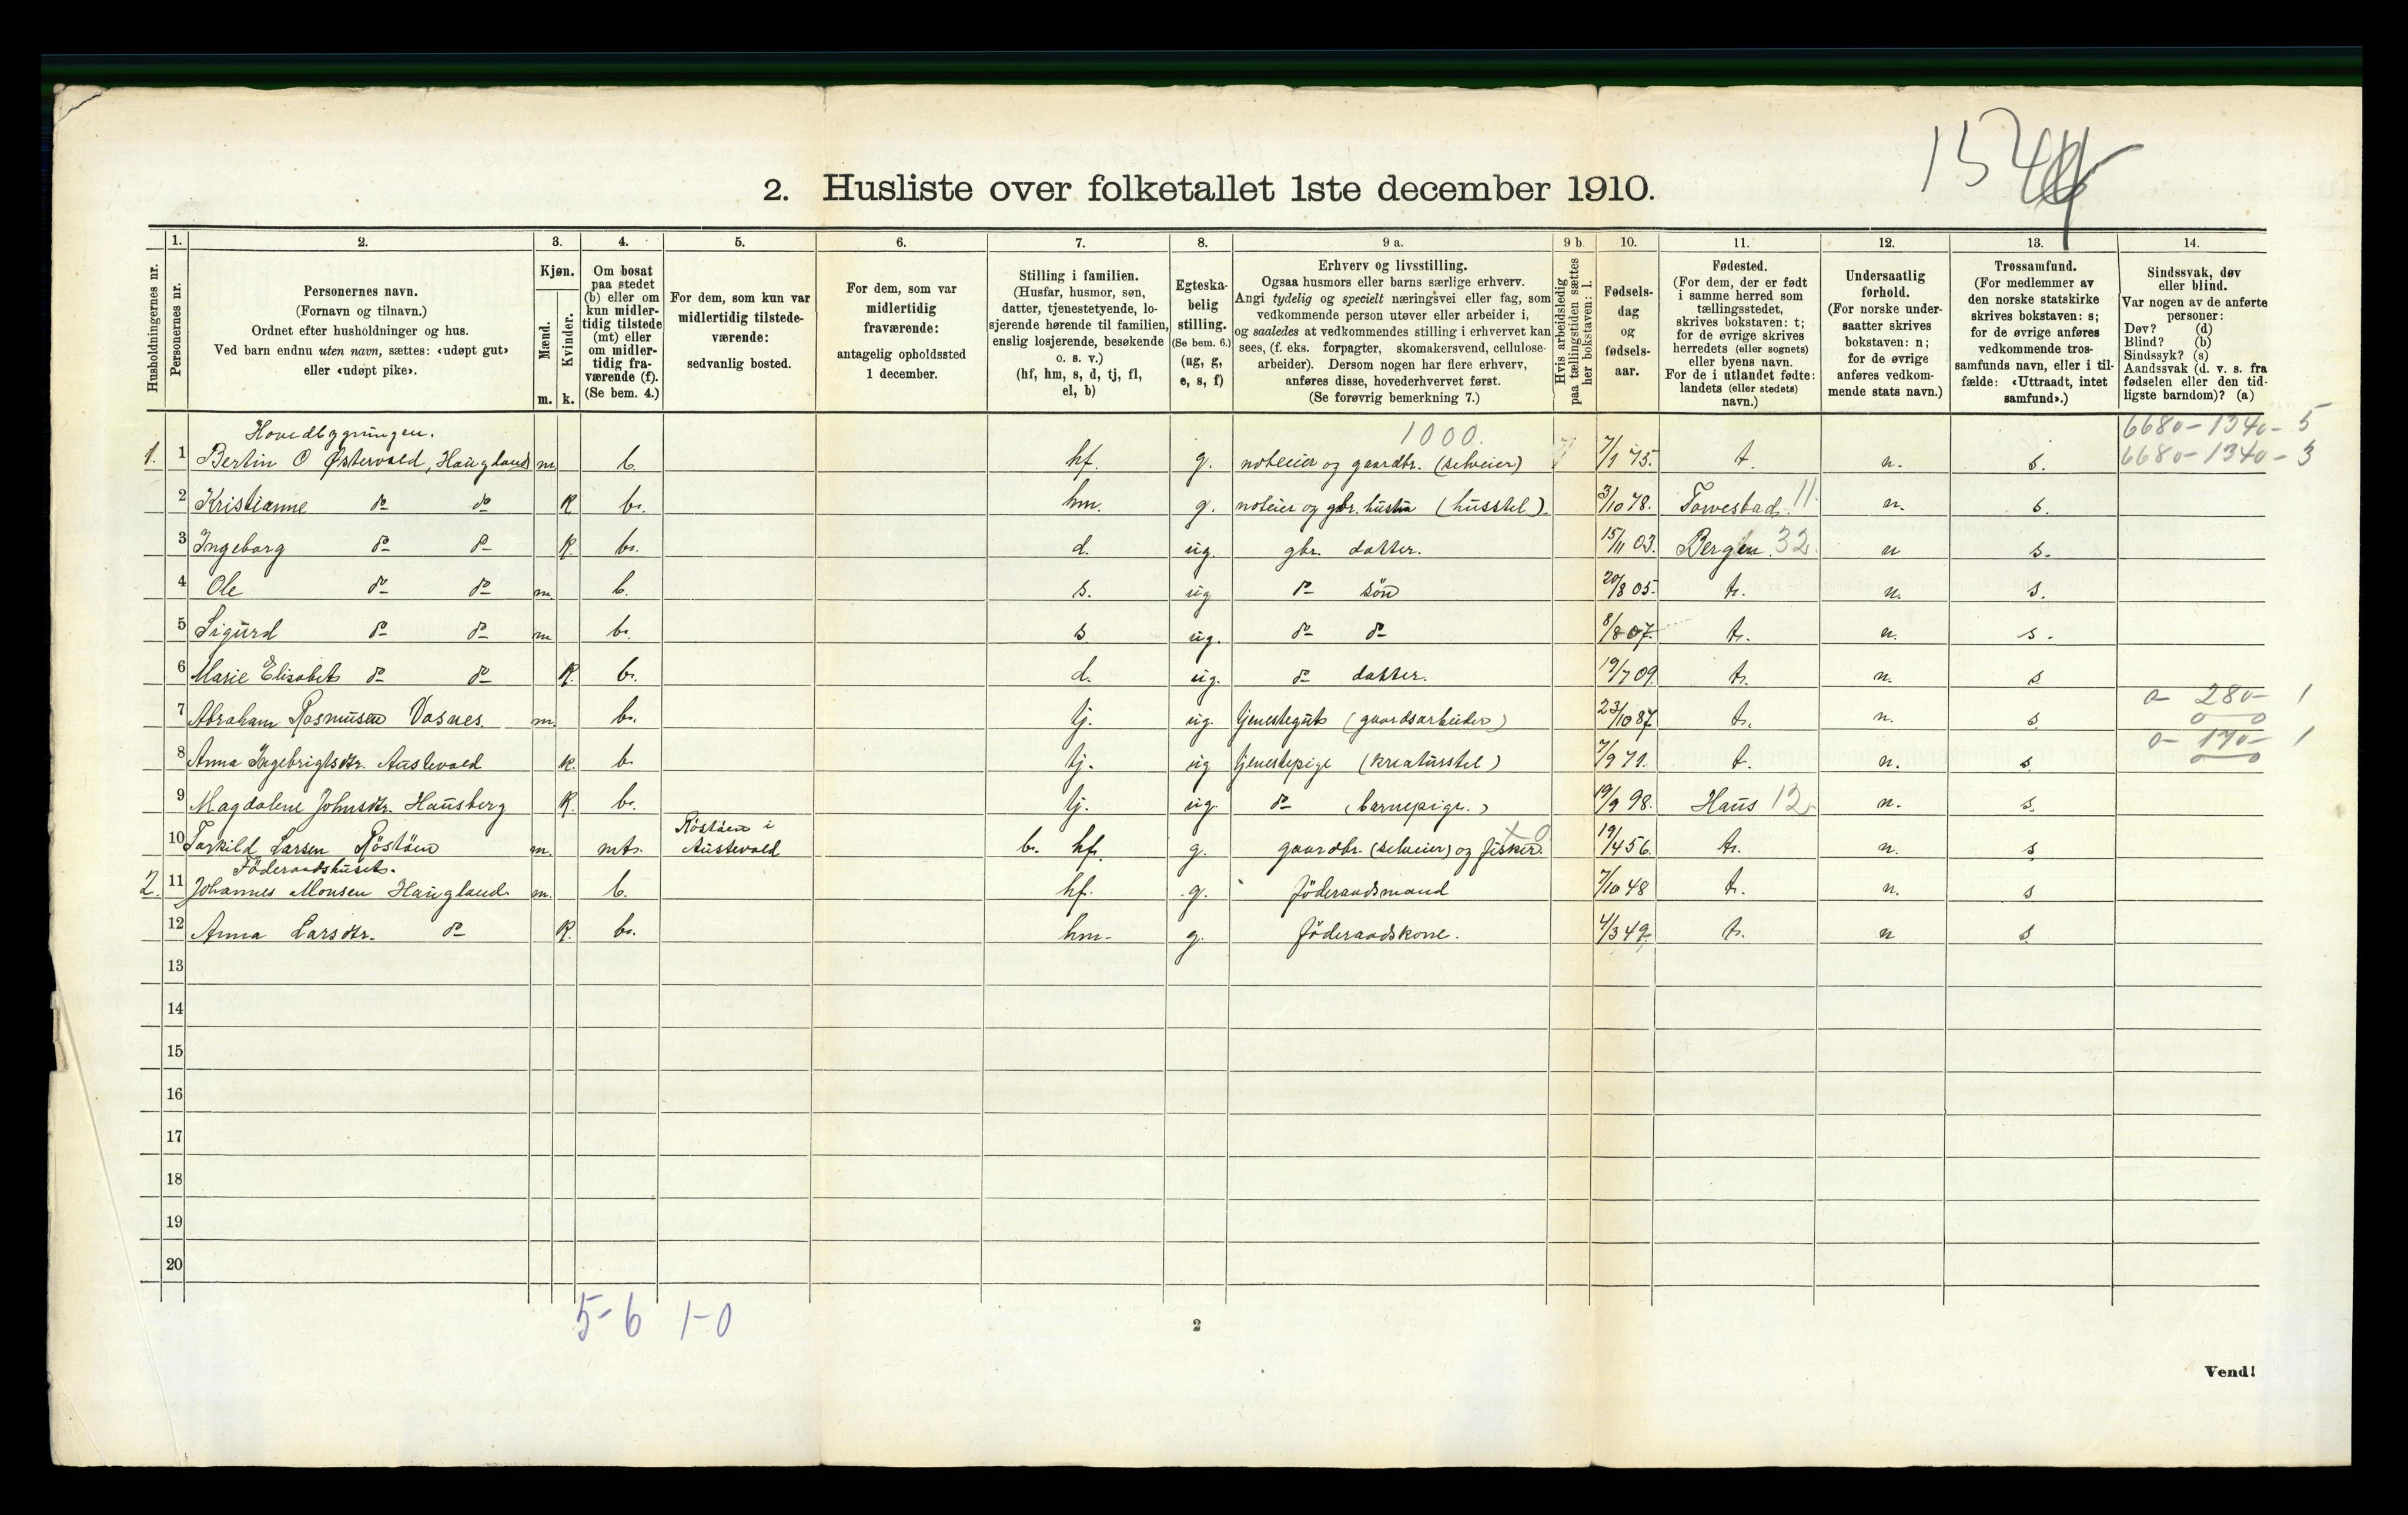 1544
2. Husliste over folketallet 1ste december 1910.
1. 2. 3. 4. 5. 6. 7. 8. 9 a. 9 b. 10. 11. 12. 13. 14.
Husholdningernes nr.
Personernes nr.
Personernes navn.
(Fornavn og tilnavn.)
Ordnet efter husholdninger og hus.
Ved barn endnu uten navn, sættes: «udøpt gut»
eller «udøpt pike».
Kjøn.
Mænd.
Kvinder.
m. k.
Om bosat
paa stedet
(b) eller om
kun midler-
tidig tilstede
(mt) eller
om midler-
tidig fra-
værende (f).
(Se bem. 4.)
For dem, som kun var
midlertidig tilstede-
værende:
sedvanlig bosted.
For dem, som var
midlertidig
fraværende:
antagelig opholdssted
1 december.
Stilling i familien.
(Husfar, husmor, søn,
datter, tjenestetyende, lo-
sjerende hørende til familien,
enslig losjerende, besøkende
o. s. v.)
(hf, hm, s, d, tj, fl,
el, b)
Egteska-
belig
stilling.
(Se bem. 6.)
(ug, g,
e, s, f)
Erhverv og livsstilling.
Ogsaa husmors eller barns særlige erhverv.
Angi tydelig og specielt næringsvei eller fag, som
vedkommende person utøver eller arbeider i,
og saaledes at vedkommendes stilling i erhvervet kan
sees, (f. eks. forpagter, skomakersvend, cellulose-
arbeider). Dersom nogen har flere erhverv,
anføres disse, hovederhvervet først.
(Se forøvrig bemerkning 7.)
Hvis arbeidsledig
paa tællingstiden sættes
her bokstaven: l.
Fødsels-
dag
og
fødsels-
aar.
Fødested.
(For dem, der er født
i samme herred som
tællingsstedet,
skrives bokstaven: t;
for de øvrige skrives
herredets (eller sognets)
eller byens navn.
For de i utlandet fødte:
landets (eller stedets)
navn.)
Undersaatlig
forhold.
(For norske under-
saatter skrives
bokstaven: n;
for de øvrige
anføres vedkom-
mende stats navn.)
Trossamfund.
(For medlemmer av
den norske statskirke
skrives bokstaven: s;
for de øvrige anføres
vedkommende tros-
samfunds navn, eller i til-
fælde: «Uttraadt, intet
samfund».)
Sindssvak, døv
eller blind.
Var nogen av de anførte
personer:
Døv? (d)
Blind? (b)
Sindssyk? (s)
Aandssvak (d. v. s. fra
fødselen eller den tid-
ligste barndom)? (a)
Hovedbygningen. 1000. 6680-1340-5
1. 1 Bertin O Østervold, Haugland m. b. hf. g. noteier og gaardbr. (selveier) 7/1 75. t. n. s. 6680-1340-3
2 Kristianne do do k b. hm. g. noteier og gbr. hustru (husstel). 3/10 78. Torvestad. 11. n. s.
3 Ingeborg do do k. b. d. ug. gbr. datter. 15/11 03. Bergen. 32. n s.
4 Ole do do m. b. s. ug do sön 20/8 05. t. n. s.
5 Sigurd do do m b. s ug. do do 8/8 07. t. n. s.
6 Marie Elisabet do do k. b. d. ug. do datter. 19/7 09. t. n. s
7 Abraham Rasmusen Vasnes. m. b. tj. ug. tjenestegut (gaardsarbeider) 23/10 87. t. n. s 0- 280- 1
8 Anna Ingebrigtsdtr. Austevold k. b. tj. ug tjenestepige (kreaturstel) 7/9 71. t. n. s. 0- 170- 1
9 Magdalene Johnsdtr. Hausberg k. b. tj. ug. do (barnepige.) 19/9 98. Haus 12. n. s.
Röstöen i
10 Torkild Larsen Röstöen m. mt. Austevold b. hf. g. gaardbr. (selveier) og fisker. 19/4 56. t. n. s
Föderaadshuset.
2. 11 Johannes Monsen Haugland. m. b. hf. g. föderaadsmand 7/10 48 t. n. s
12 Anna Larsdtr. do k. b. hm. g. föderaadskone. 4/3 49. t. n s
13
14
15
16
17
18
19
20
5-6 1-0
2
Vend!